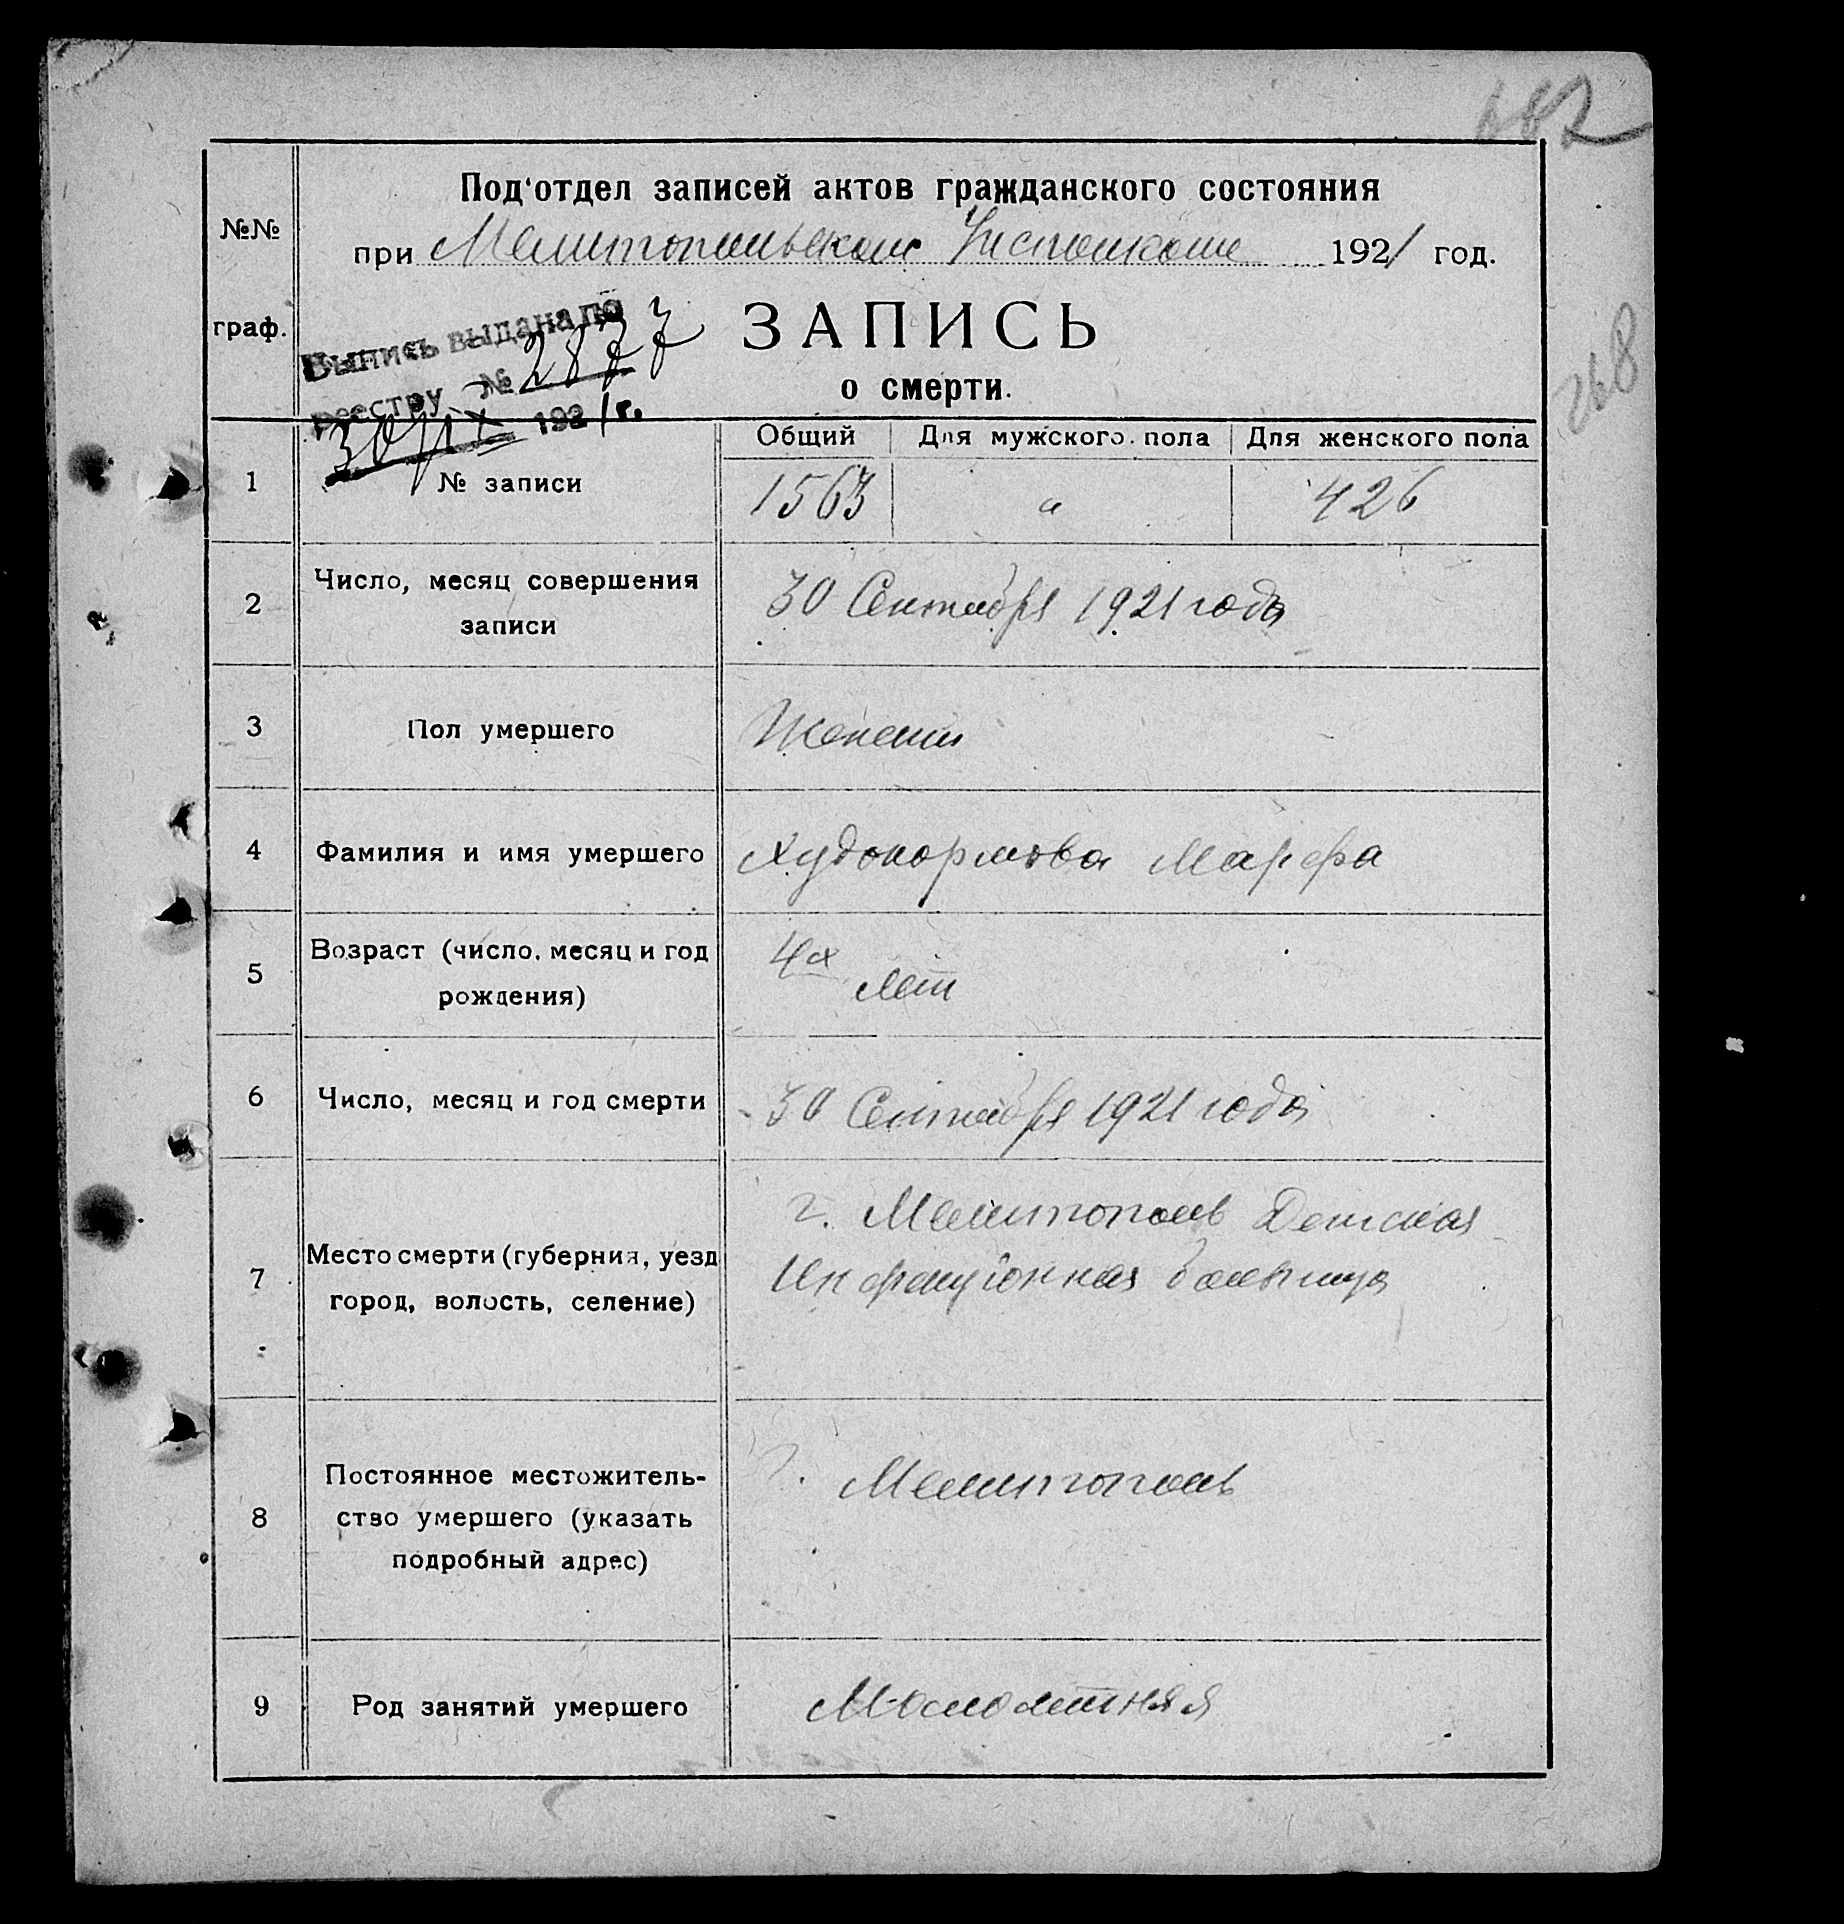 682
№№ граф.
Под‘отдел записей актов гражданского состояния
при Мелитопольском Исполкоме 1921 год.
268
Выпись выдана по
реестру № 2877
30/IX 1921 г.
ЗАПИСЬ
о смерти.
Общий Для мужского пола Для женского пола
1 № записи 1563 " 426
2 Число, месяц совершения
записи
30 Сентября 1921 года
3 Пол умершего Женский
4 Фамилия и имя умершего Худокормова Марфа
5 Возраст (число, месяц и год
рождения)
4х лет
6 Число, месяц и год смерти 30 Сентября 1921 года
7 Место смерти (губерния, уезд
город, волость, селение)
г. Мелитополь Детская
Инфекционная больница
8 Постоянное местожитель-
ство умершего (указать
подробный адрес)
г. Мелитополь
9 Род занятий умершего Малолетняя